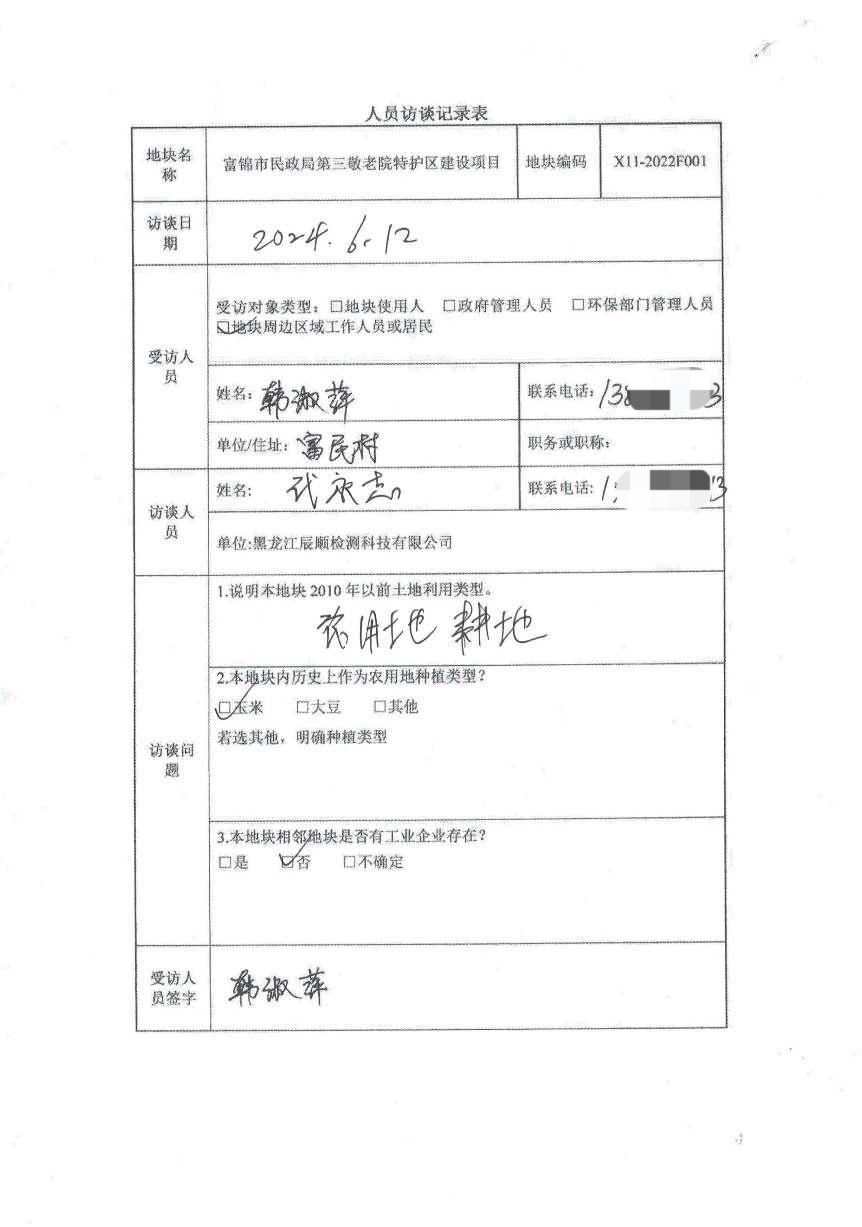 人员访谈记录表
地块名称 富锦市民政局第三敬老院特护区建设项目 地块编码 X11-2022F001
访谈日期 2024.6.12
受访人员
受访对象类型：□地块使用人 □政府管理人员 □环保部门管理人员
☑地块周边区域工作人员或居民
姓名：韩淑萍 联系电话：
单位/住址：富民村 职务或职称：
访谈人员
姓名： 代永志 联系电话：
单位:黑龙江辰顺检测科技有限公司
访谈问题
1.说明本地块 2010 年以前土地利用类型。
农用地 耕地
2.本地块内历史上作为农用地种植类型？
☑玉米 □大豆 □其他
若选其他，明确种植类型
3.本地块相邻地块是否有工业企业存在？
□是 ☑否 □不确定
受访人员签字 韩淑萍